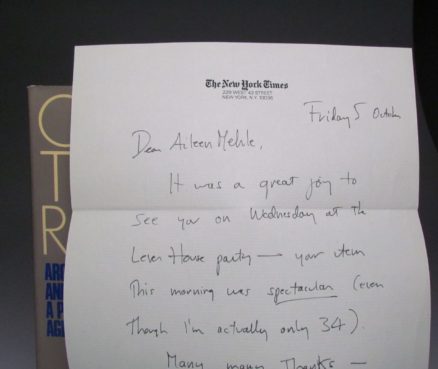 The New York Times
229 WEST 43 STREET
NEW YORK, N.Y. 10036
Friday 5 October
Dear Aileen Mehle,
It was a great joy to
see you on Wednesday at the
Lever House party — your item
this morning was spectacular (even
though I'm actually only 34).
Many many thanks —
O
T
R
ARC
ANA
A P
AGE